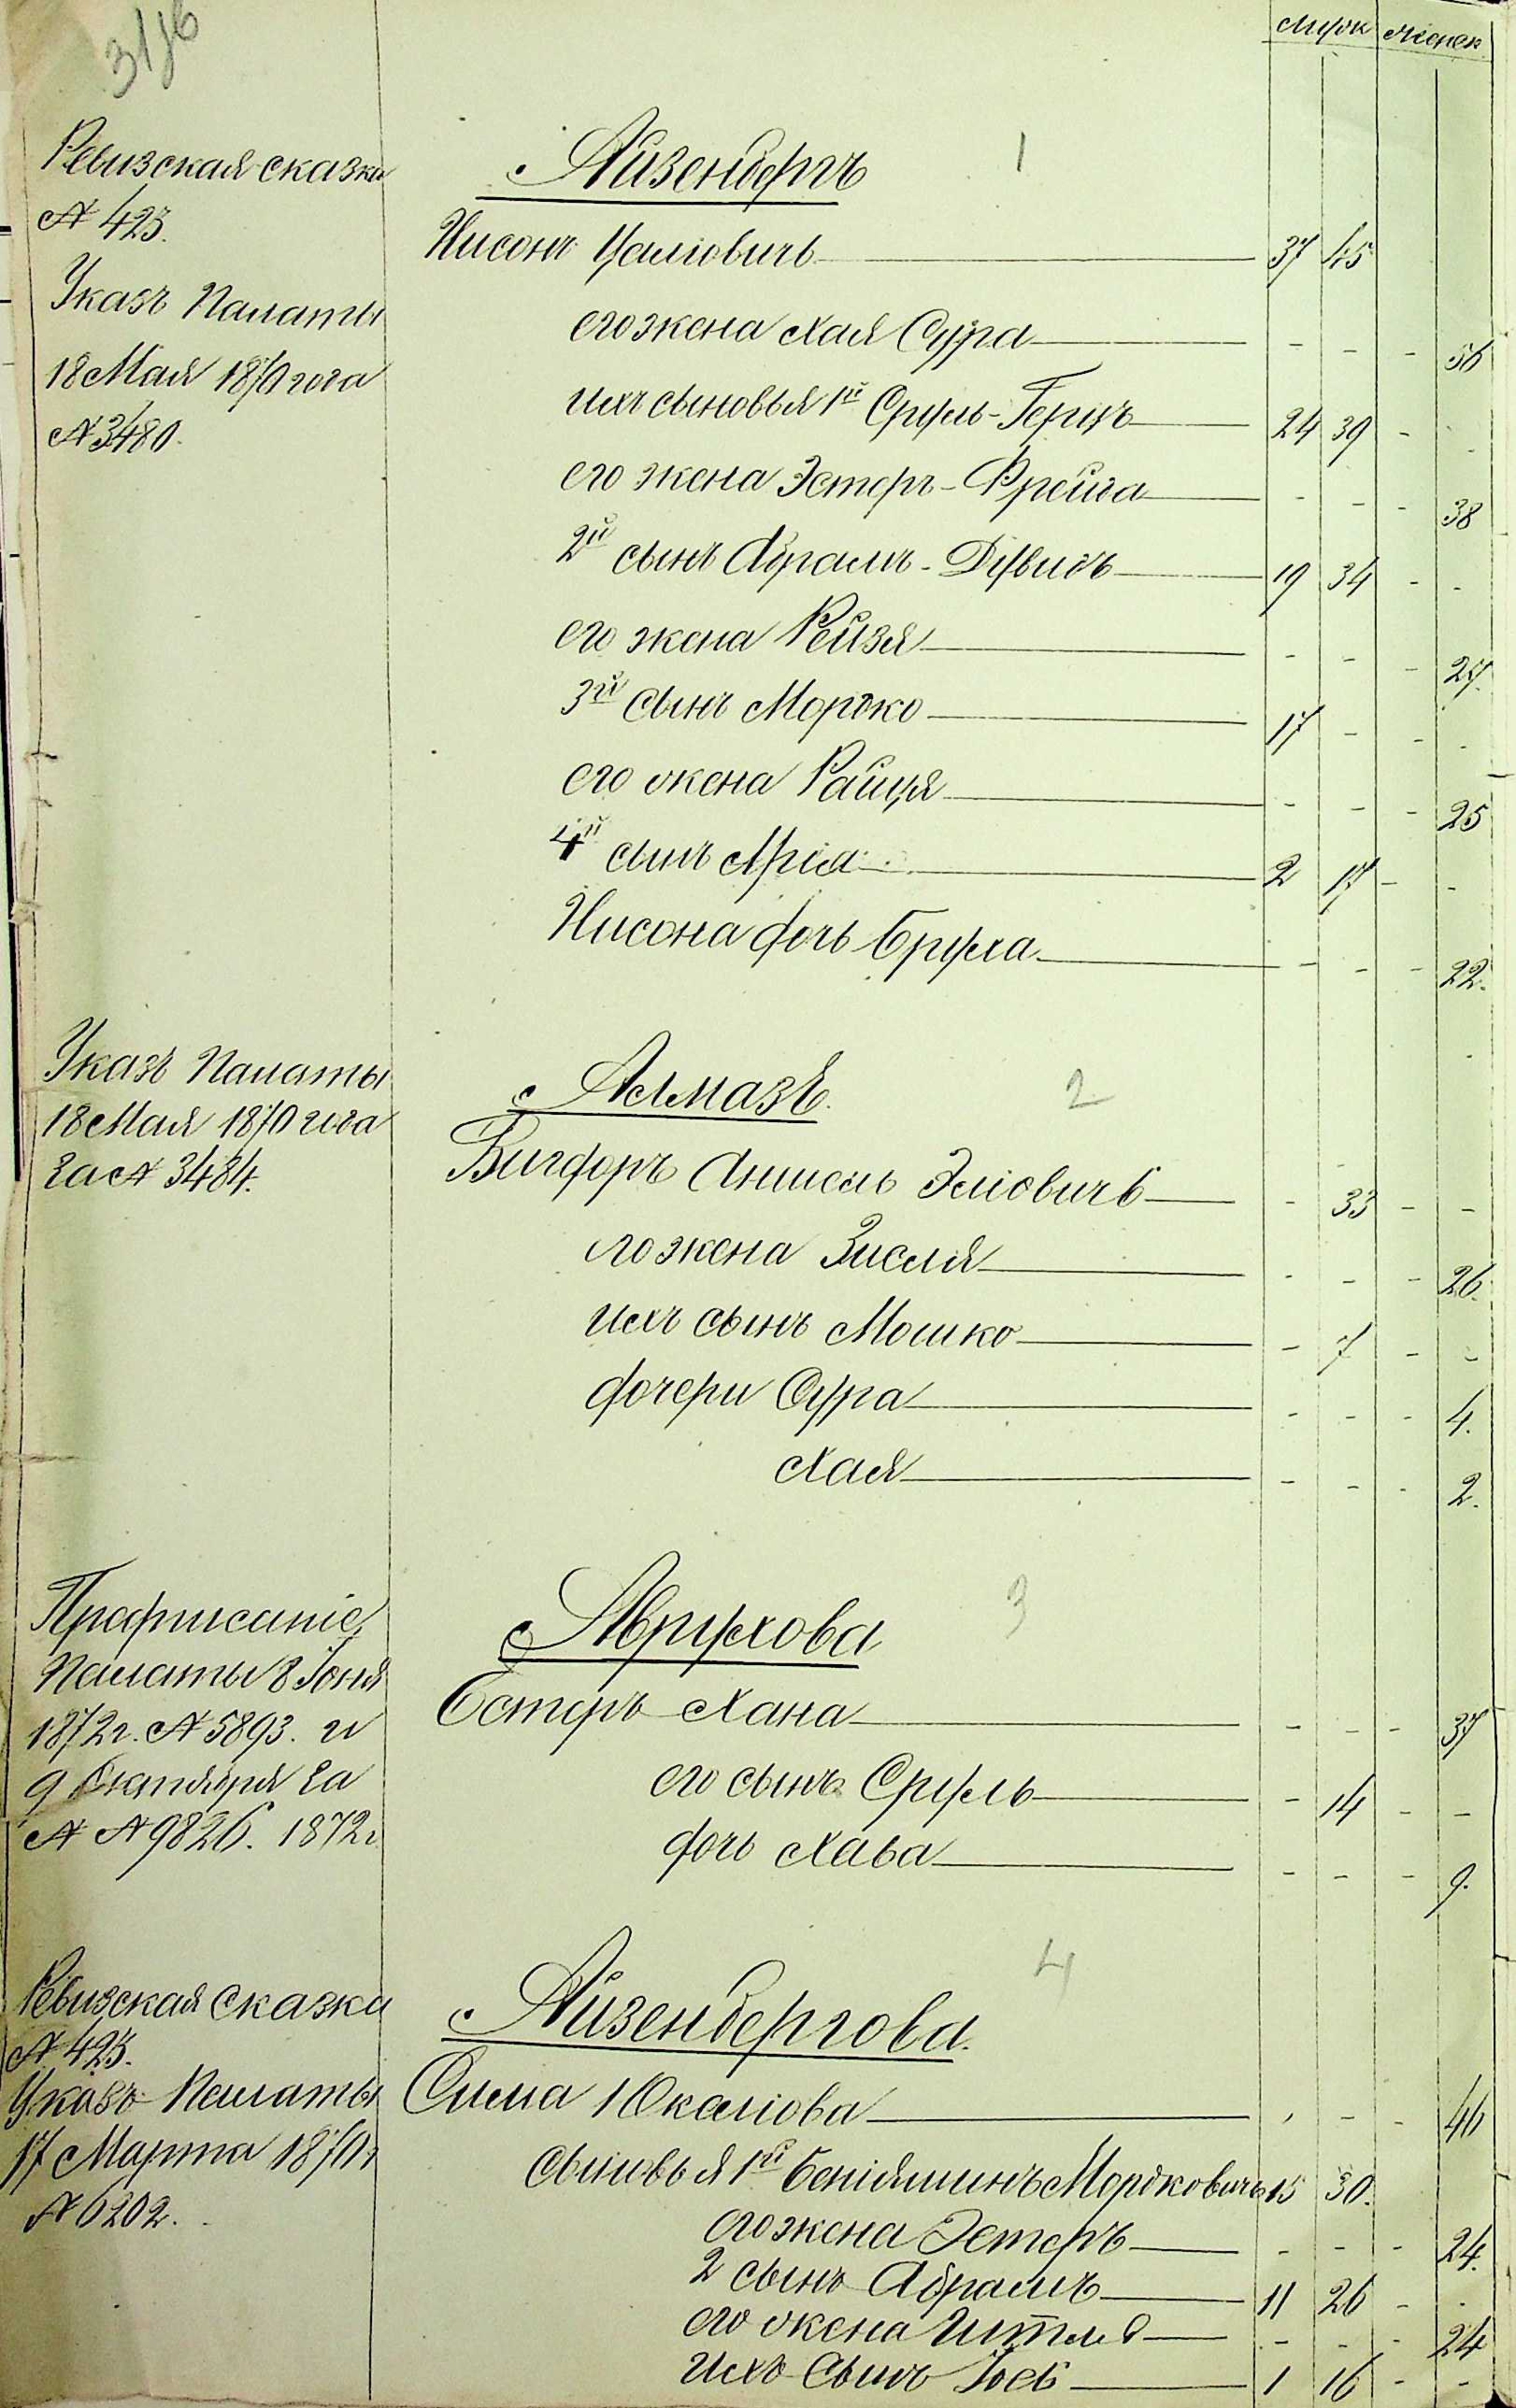 31/16
мужск женск
Ревизская сказка
№ 423.
Указъ Палаты
18 Мая 1870 года
№ 3480.
Айзенбергъ 1
Нисонъ Цаліовичъ 37 45
его жена Хая Сура - - - 56
ихъ сыновья 1й Сруль-Герцъ 24 39 - -
его жена Эстеръ-Фрейда - - - 38
2й сынъ Абрамъ-Дувидъ 19 34 - -
его жена Рейзя - - - 27.
3й сынъ Мордко 17 - - -
его жена Райця - - - 25
4й сынъ Аріа 2 17 - -
Нисона дочь Бруха - - - 22.
Указъ Палаты
18 Мая 1870 года
за № 3484.
Алмазъ. 2
Вигдоръ Аншель Эліовичъ - 33 - -
его жена Зисля - - - 26.
ихъ сынъ Мошко - 7 - -
дочери Сура - - - 4.
Хая - - - 2.
Предписаніе
Палаты 8 Іюня
1872 г. № 5893. и
9 Октября за
№ № 9826. 1872 г
Аврухова 3
Естеръ Хана - - - 37
его сынъ Сруль - 14 - -
дочь Хава - - - 9.
Ревизская сказка
№ 423.
Указъ Палаты
17 Марта 1870 г
№ 6202.
Айзенбергова. 4
Сима Юкаліова - - - 46
сыновья 1й Беніяминъ Мордковичъ 15 30.
его жена Эстеръ - - - 24.
2 сынъ Абрамъ 11 26 - -
его жена Гитля - - - 24
ихъ сынъ Іось 1 16 - -